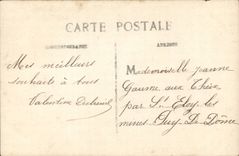 CARTE POSTALE
CORRESPONDANCE
ADRESSE
Mes meilleurs
souhaits à tous
Valentine
Mademoiselle Jeanne
Gaume aux Thèix
par St Eloy les
mines Puy De Dôme